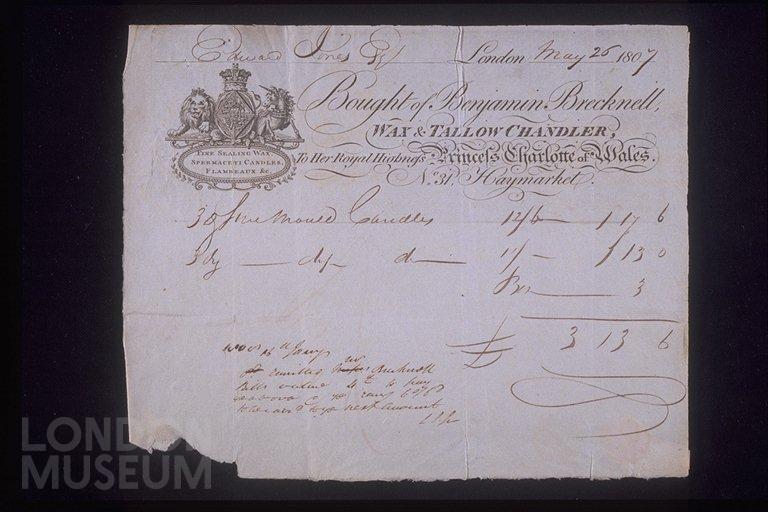 Edward Jones Esqr London May 26 1807
Bought of Benjamin Brecknell,
WAX & TALLOW CHANDLER,
To Her Royal Highness Princess Charlotte of Wales.
No. 31, Haymarket.
FINE SEALING WAX,
SPERMACETI CANDLES,
FLAMBEAUX &c
3 dz fine Mould Candles 12/6 1 17 6
3 dz do do 11/ 1 13 0
Box 3
£ 3 13 6
Brecknell
value to pay
above
next amount
LONDON
MUSEUM